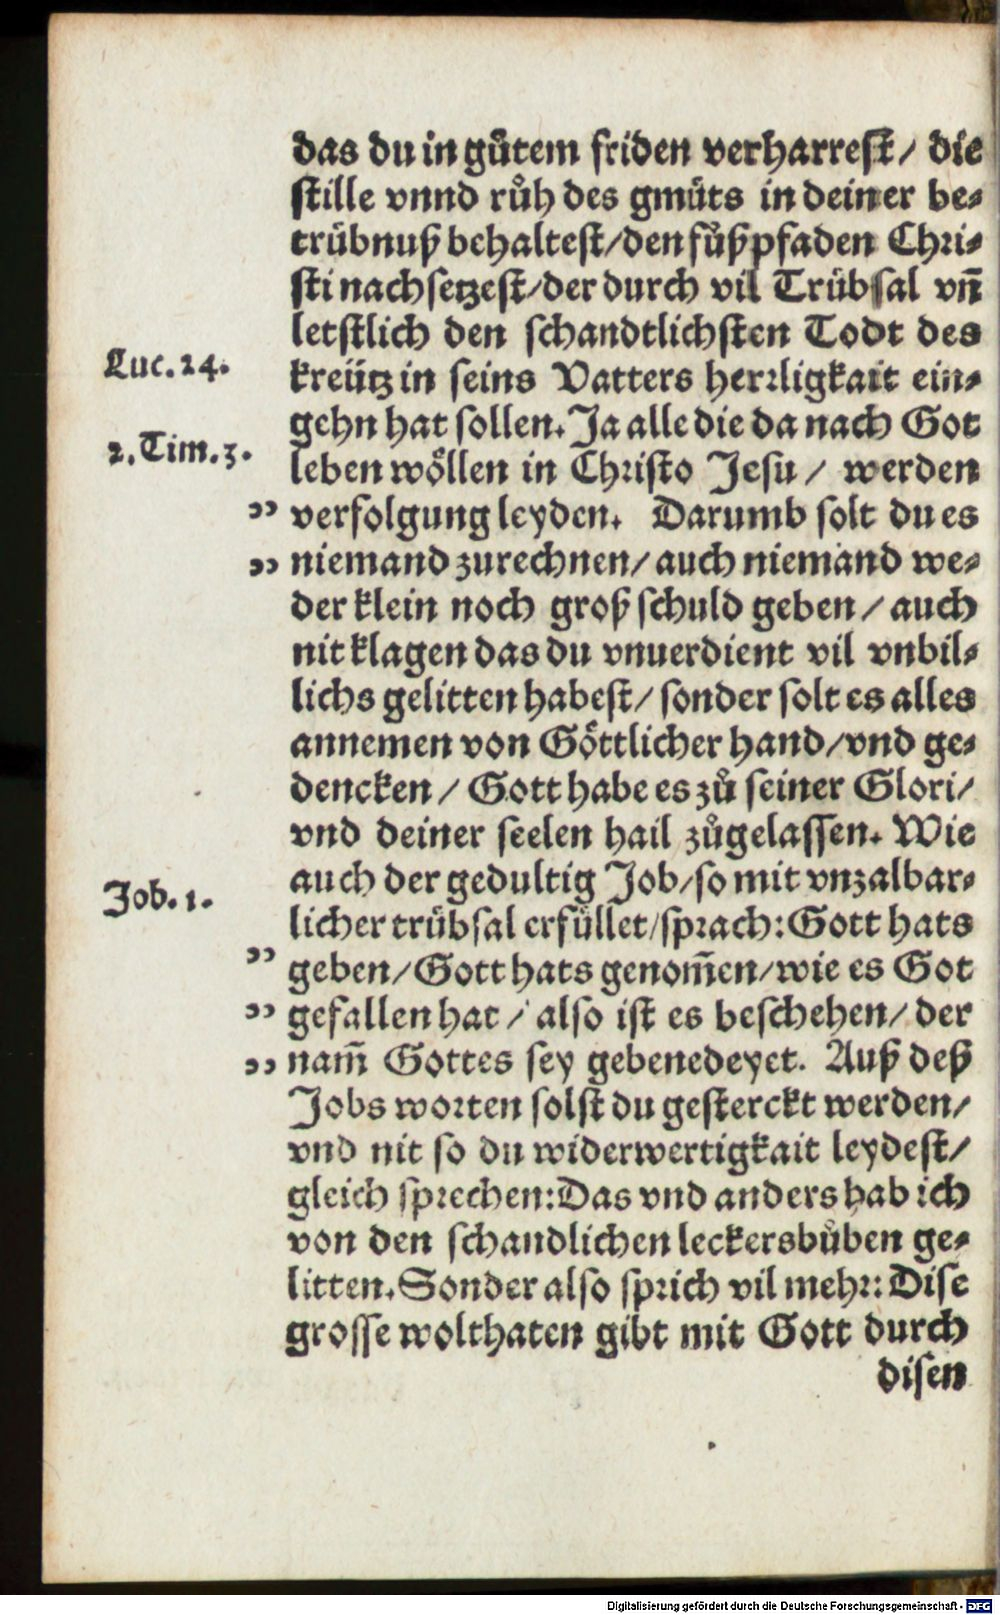 das du in gůtem friden verharrest/ die
stille vnnd růh des gmüts in deiner be⸗
trübnuß behaltest/den fůßpfaden Chri⸗
sti nachsetzest/der durch vil Trübsal vñ
letstlich den schandtlichsten Todt des
Luc. 24.
kreütz in seins Vatters herrligkait ein⸗
gehn hat sollen. Ja alle die da nach Got
2. Tim. 3.
leben wöllen in Christo Jesu/ werden
" verfolgung leyden. Darumb solt du es
" niemand zurechnen/ auch niemand we⸗
der klein noch groß schuld geben/ auch
nit klagen das du vnuerdient vil vnbil⸗
lichs gelitten habest/ sonder solt es alles
annemen von Göttlicher hand/vnd ge⸗
dencken/ Gott habe es zů seiner Glori/
vnd deiner seelen hail zůgelassen. Wie
Job. 1.
auch der gedultig Job/so mit vnzalbar⸗
licher trübsal erfüllet/sprach: Gott hats
" geben/Gott hats genom̃en/wie es Got
" gefallen hat/ also ist es beschehen/ der
" nam̃ Gottes sey gebenedeyet. Auß deß
Jobs worten solst du gesterckt werden/
vnd nit so du widerwertigkait leydest/
gleich sprechen: Das vnd anders hab ich
von den schandlichen leckersbůben ge⸗
litten. Sonder also sprich vil mehr: Dise
grosse wolthaten gibt mit Gott durch
disen
Digitalisierung gefördert durch die Deutsche Forschungsgemeinschaft - DFG